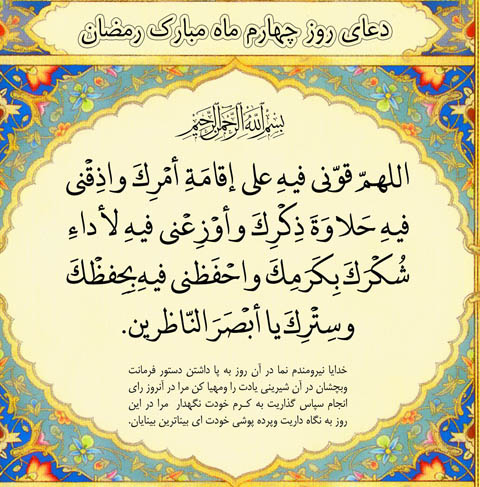 دعای روز چهارم ماه مبارک رمضان
بِسْمِ اللَّهِ الرَّحْمَنِ الرَّحِيمِ
اللهمّ قوّنی فیهِ علی إقامَةِ أمْرِكَ واذِقْنی
فیهِ حَلاوَةَ ذِكْرِكَ وأوْزِعْنی فیهِ لأداءِ
شُكْرَكَ بِكَرَمِكَ واحْفَظنی فیهِ بِحِفظْكَ
وسِتْرِكَ یا أبْصَرَ النّاظرین.
خدایا نیرومندم نما در آن روز به پا داشتن دستور فرمانت
وبچشان در آن شیرینی یادت را ومهیا کن مرا در آنروز رای
انجام سپاس گذاریت به کرم خودت نگهدار مرا در این
روز به نگاه داریت وپرده پوشی خودت ای بیناترین بینایان.